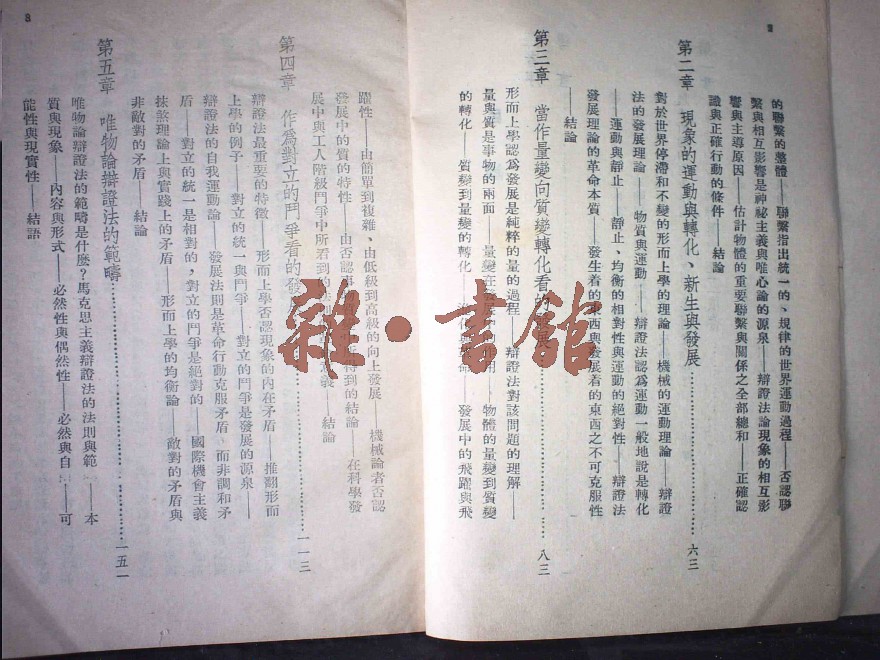 2
的聯繫的整體——聯繫指出統一的、規律的世界運動過程——否認聯
繫與相互影響是神祕主義與唯心論的源泉——辯證法論現象的相互影
響與主導原因——估計物體的重要聯繫與關係之全部總和——正確認
識與正確行動的條件——結論
第二章 現象的運動與轉化、新生與發展……六三
對於世界停滯和不變的形而上學的理論——機械的運動理論——辯證
法的發展理論——物質與運動——辯證法認爲運動一般地說是轉化
——運動與靜止——靜止、均衡的相對性與運動的絕對性——辯證法
發展理論的革命本質——發生着的東西與發展着的東西之不可克服性
——結論
第三章 當作量變向質變轉化看的發展……八三
形而上學認爲發展是純粹的量的過程——辯證法對該問題的理解——
量與質是事物的兩面——量變在 用——物體的量變到質變
的轉化——質變到量變的轉化—— 命——發展中的飛躍與飛
3
躍性——由簡單到複雜、由低級到高級的向上發展——機械論者否認
發展中的質的特性——由否認 得到的結論——在科學發
展中與工人階級鬥爭中所看到的 義——結論
第四章 作爲對立的鬥爭看的發……一一三
辯證法最重要的特徵——形而上學否認現象的內在矛盾——推翻形而
上學的例子——對立的統一與鬥爭——對立的鬥爭是發展的源泉——
辯證法的自我運動論——發展法則是革命行動克服矛盾、而非調和矛
盾——對立的統一是相對的，對立的鬥爭是絕對的——國際機會主義
抹煞理論上與實踐上的矛盾——形而上學的均衡論——敵對的矛盾與
非敵對的矛盾——結論
第五章 唯物論辯證法的範疇……一五一
唯物論辯證法的範疇是什麼？馬克思主義辯證法的法則與範 ——本
質與現象——內容與形式——必然性與偶然性——必然與自 ——可
能性與現實性——結語
雜·書館